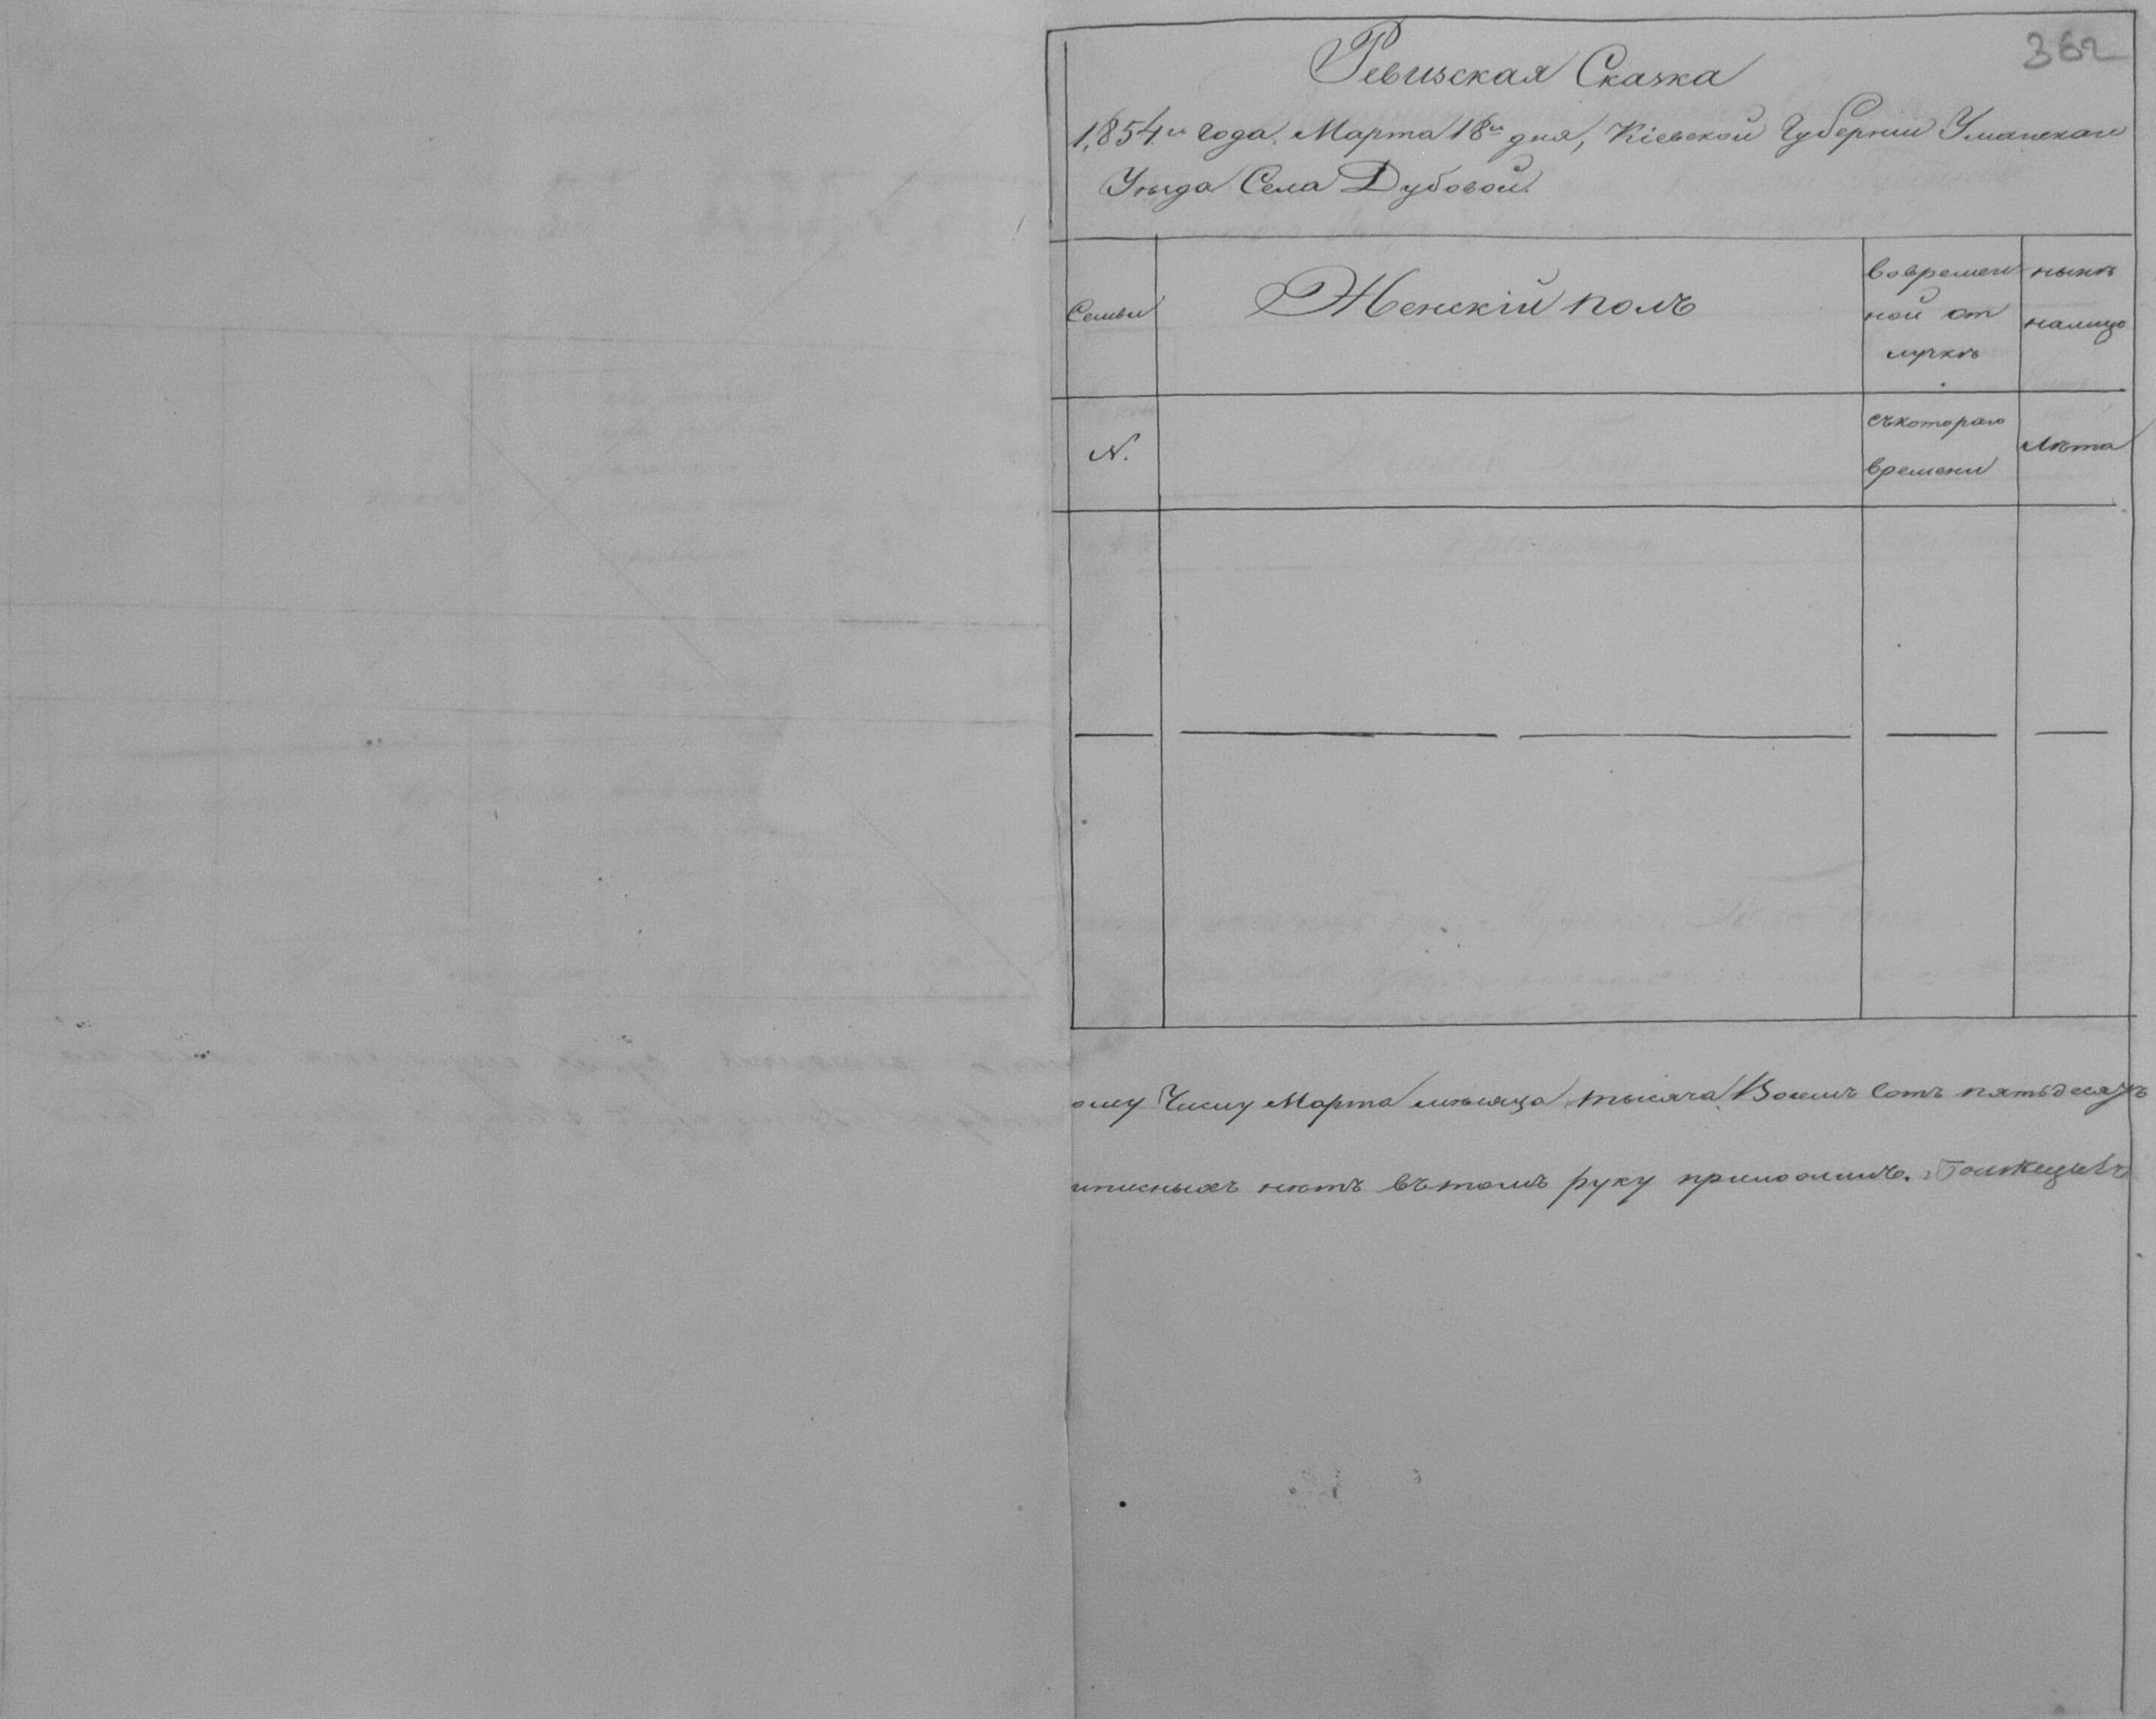 362
Ревизская Сказка
1,854го года Марта 18го дня, Кіевской Губерніи Уманскаго
Уѣзда Села Дубовой.
Семьи
Женскій полъ
во времен
ной от
лучкѣ
нынѣ
налицо
N.
съ котораго
времени
Лѣта
ому Числу Марта мѣсяца тысяча Восемъ Сотъ пятьдесятъ
писныхъ нѣтъ въ томъ руку приложилъ.